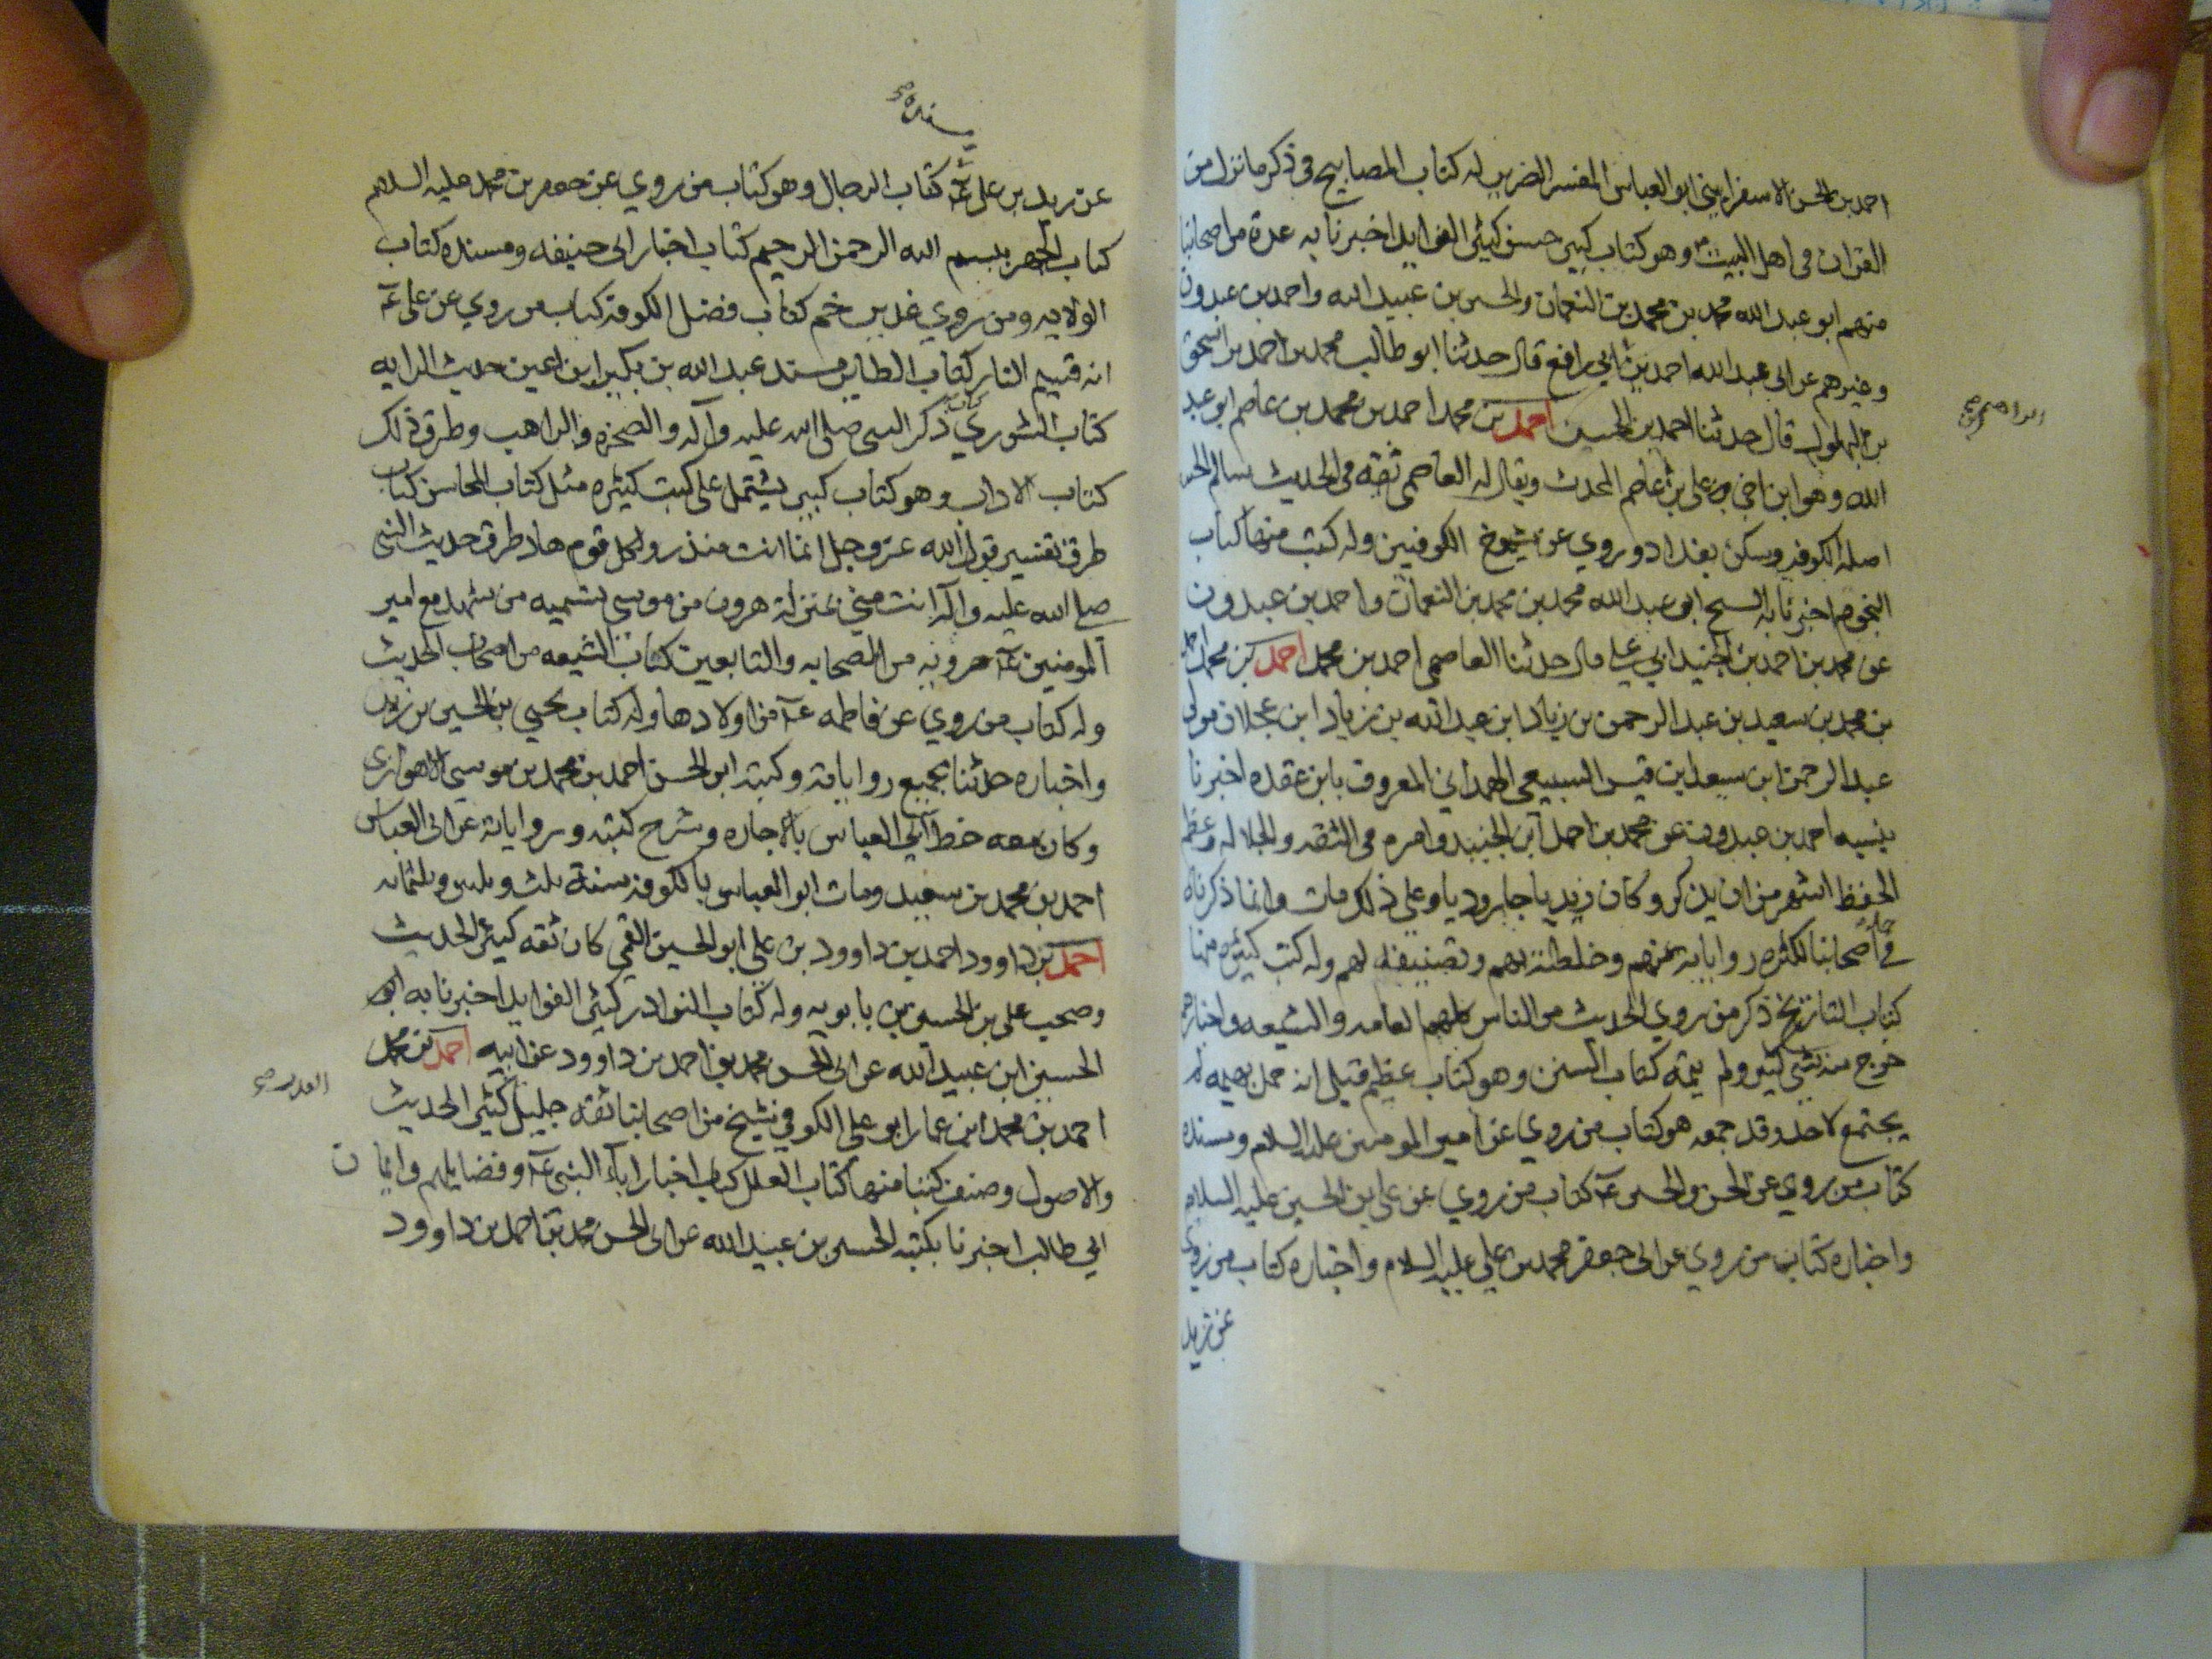 احمد بن الحسن الاسفرايني ابو العباس المفسر الضرير له كتاب المصابيح في ذكر ما نزل من
القران في اهل البيت ع وهو كتاب كبير حسن كثير الفوايد اخبرنا به عدة من اصحابنا
منهم ابو عبد الله محمد بن محمد بن النعمان والحسين بن عبيد الله واحمد بن عبدون
وغيرهم عن ابي عبد الله احمد بن ابي رافع قال حدثنا ابو طالب محمد بن احمد بن اسحق
بن البهلول قال حدثنا احمد بن الحسين احمد بن محمد احمد بن محمد بن عاصم ابو عبد
الله وهو ابن اخي علي بن عاصم المحدث ويقال له العاصمي ثقه في الحديث سالم
اصله الكوفه وسكن بغداد وروي عن شيوخ الكوفيين وله كتب منها كتاب
النجوم اخبرنا به الشيخ ابو عبد الله محمد بن محمد بن النعمان واحمد بن عبدون
عن محمد بن احمد بن الجنيد ابي علي قال حدثنا العاصمي احمد بن محمد احمد بن محمد
بن محمد بن سعيد بن عبد الرحمن بن زياد ابن عبد الله بن زياد ابن عجلان مولى
عبد الرحمن ابن سعد بن قيس السبيعي الهمداني المعروف بابن عقده اخبرنا
بنسبه احمد بن عبدون عن محمد بن احمد ابن الجنيد وامره في الثقه والجلاله وعظم
الحفظ اشهر من ان يذكر وكان زيديا جاروديا وعلى ذلك مات وانما ذكرناه
في جملة اصحابنا لكثره رواياته عنهم وخلطته بهم وتصنيفه لهم وله كتب كثيره منها
كتاب التاريخ ذكر من روي الحديث من الناس كلهم العامه والشيعه واخبارهم
خرج منه شي كثير ولم يتمه كتاب السنن وهو كتاب عظيم قيل انه حمل بهيمه لم
يجتمع لاحد وقد جمعه هو كتاب من روي عن امير المومنين عليه السلام ومسنده
كتاب من روي عن الحسن والحسين ع كتاب من روي عن علي بن الحسين عليه السلام
واخباره كتاب من روي عن ابي جعفر محمد بن علي عليه السلام واخباره كتاب من روي
عن زيد
عن زيد بن علي ع كتاب الرجال وهو كتاب من روي عن جعفر بن محمد عليه السلام
كتاب الجهر ببسم الله الرحمن الرحيم كتاب اخبار ابي حنيفه ومسنده كتاب
الولايه ومن روي غدير خم كتاب فضل الكوفه كتاب من روي عن علي ع
انه قسيم النار كتاب الطاير مسند عبد الله بن بكير ابن اعين حديث الرايه
كتاب الشوري كتاب ذكر النبي صلى الله عليه وآله والصخره والراهب وطرق ذلك
كتاب الاداب وهو كتاب كبير يشتمل على كتب كثيره مثل كتاب المحاسن كتاب
طرق تفسير قول الله عز وجل انما انت منذر ولكل قوم هاد طرق حديث النبي
صلى الله عليه وآله انت مني بمنزلة هرون من موسى تسميه من شهد مع امير
المومنين ع حروبه من الصحابه والتابعين كتاب الشيعه من اصحاب الحديث
وله كتاب من روي عن فاطمه ع من اولادها وله كتاب يحيى بن الحسين بن زيد
واخباره حدثنا بجميع رواياته وكتبه ابو الحسن احمد بن محمد بن موسى الاهوازي
وكان معه خط ابي العباس بالاجازه وشرح كتبه ورواياته عن ابي العباس
احمد بن محمد بن سعيد ومات ابو العباس بالكوفه سنة ثلث وثلثين وثلثمائه
احمد بن داوود احمد بن داوود بن علي ابو الحسين القمي كان ثقه كثير الحديث
وصحب علي بن الحسين بن بابويه وله كتاب النوادر كثير الفوايد اخبرنا به ابو
الحسين ابن عبيد الله عن ابي الحسن محمد بن احمد بن داوود عن ابيه احمد بن محمد
احمد بن محمد ابن عمار ابو علي الكوفي شيخ من اصحابنا ثقه جليل كثير الحديث
والاصول وصنف كتبا منها كتاب العلل كتاب اخبار اباء النبي ع وفضايلهم وايمان
ابي طالب اخبرنا بكتبه الحسين بن عبيد الله عن ابي الحسن محمد بن احمد بن داوود